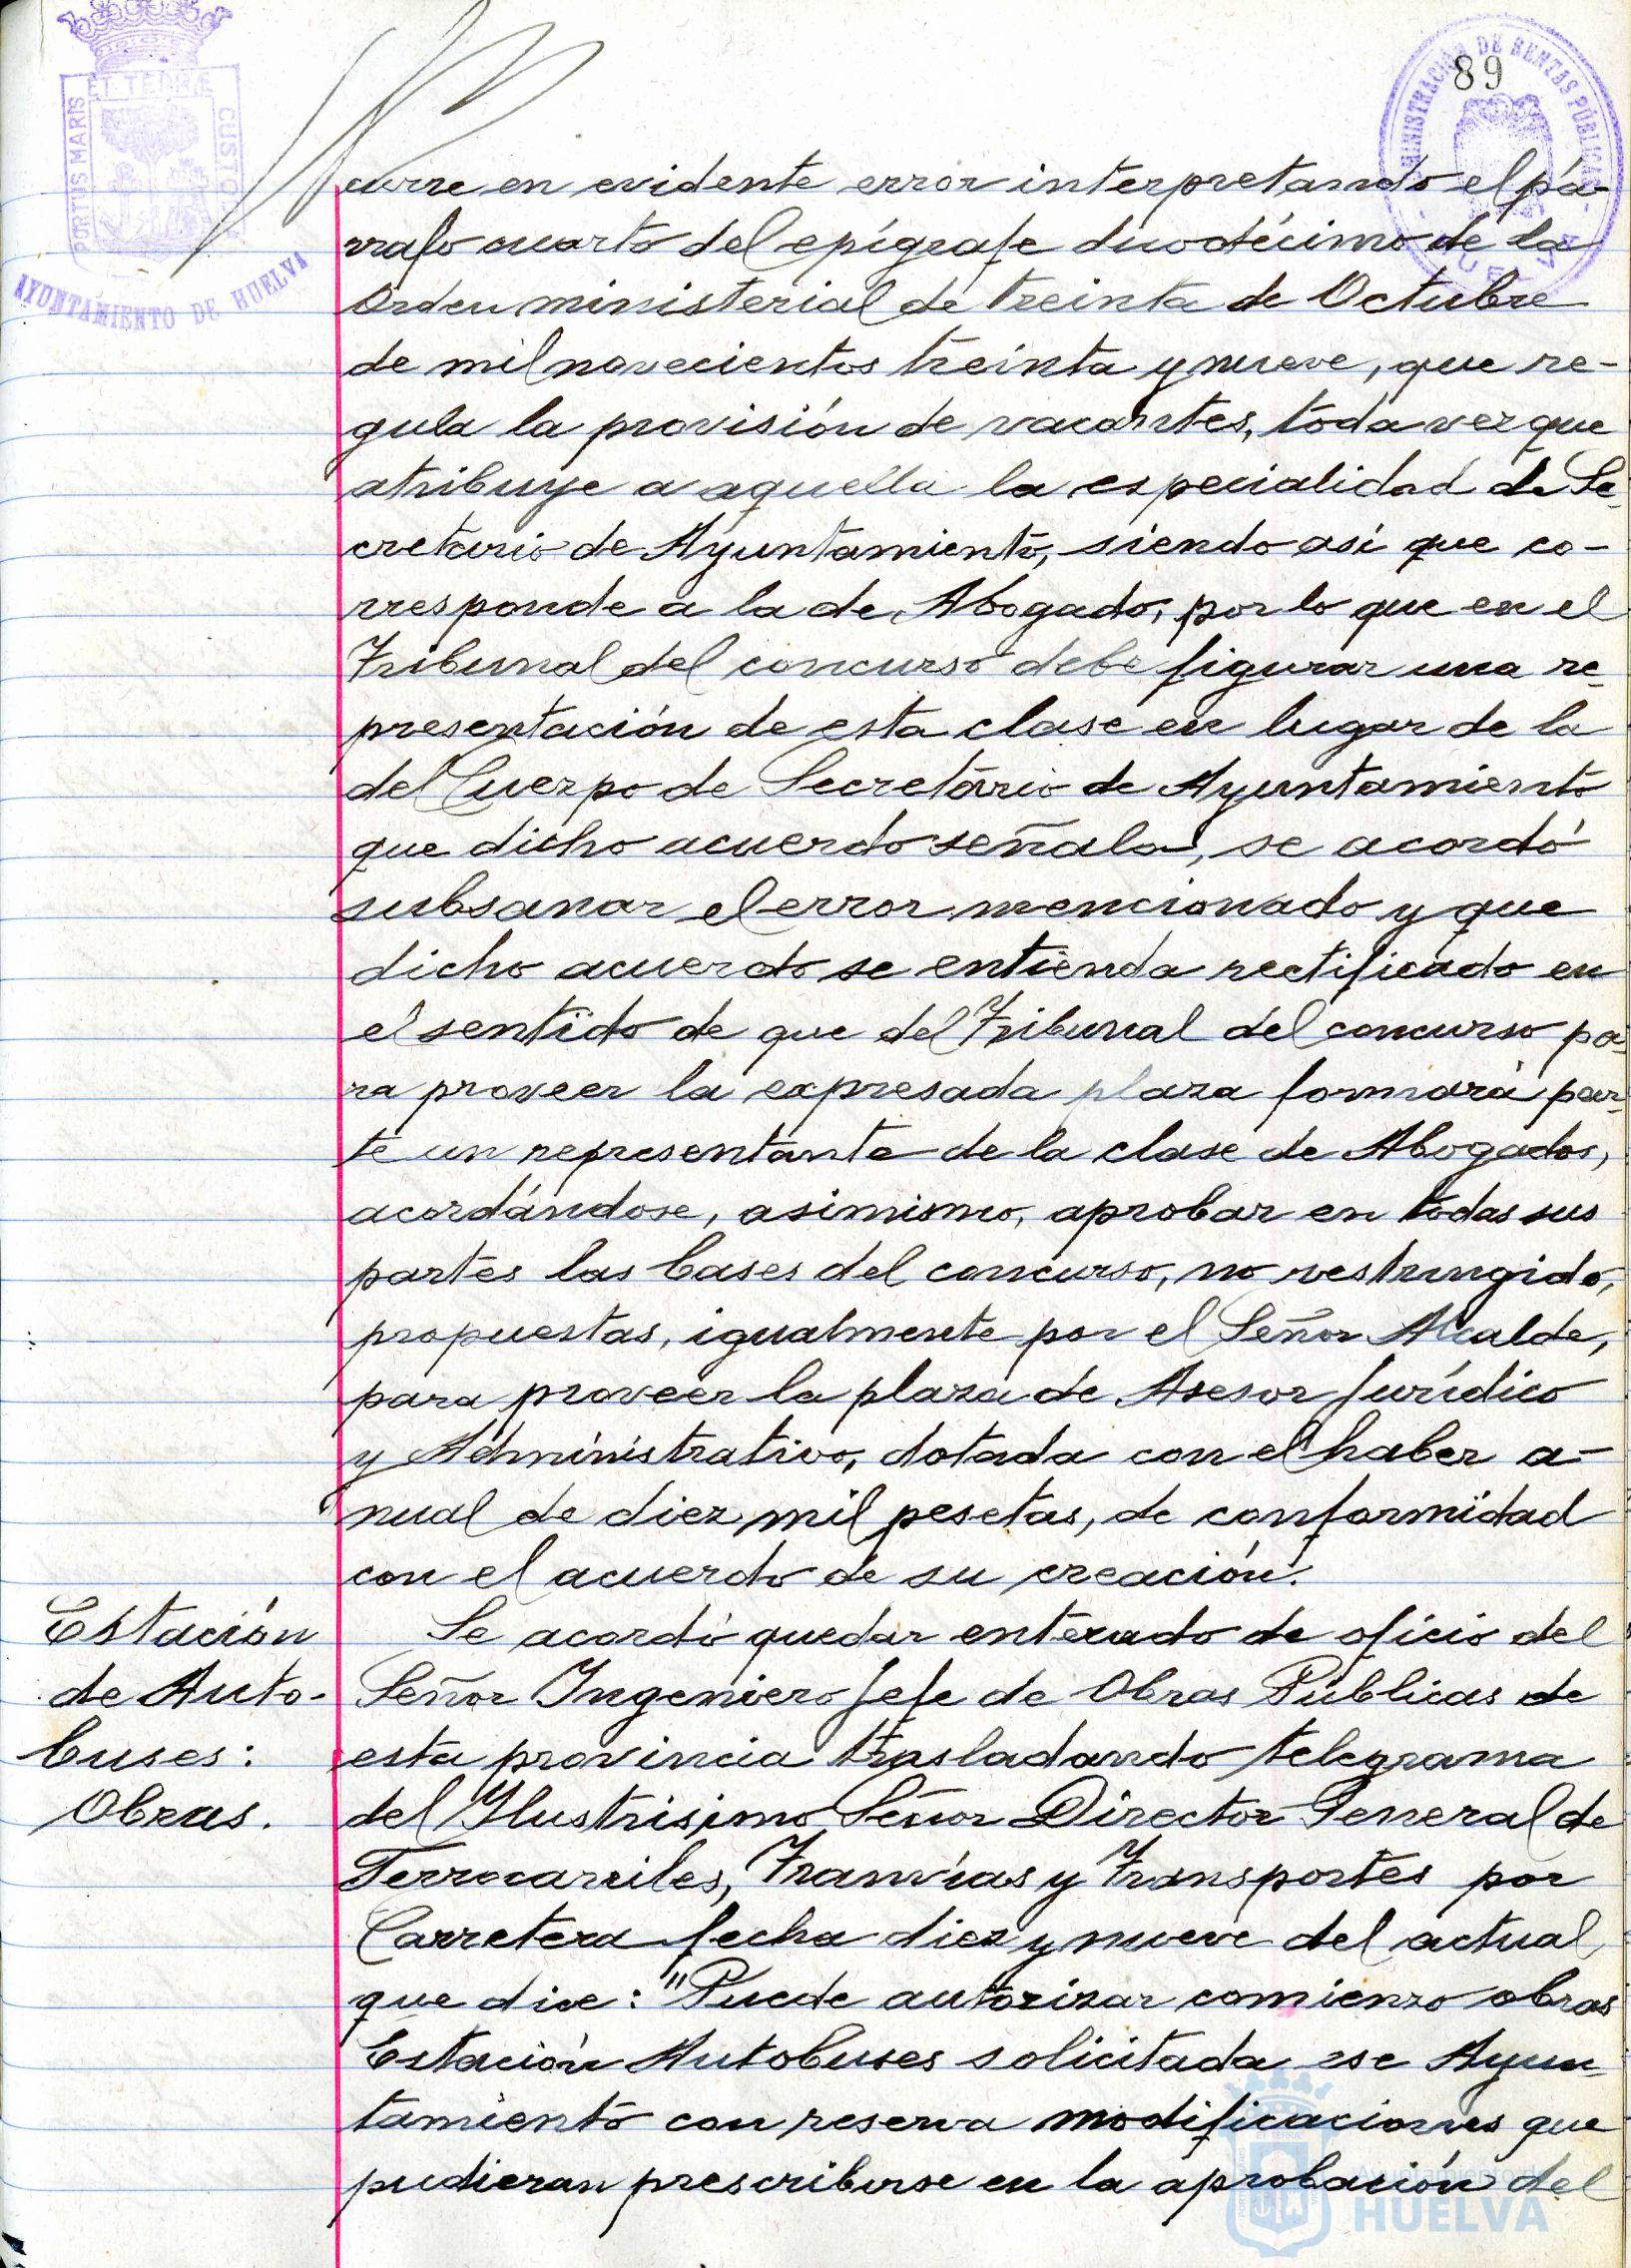 89
PORTUS MARIS ET TERRÆ CUSTO
AYUNTAMIENTO DE HUELVA
MINISTRACIÓN DE RENTAS PÚBLICAS
curre en evidente error interpretando el pá-
rrafo cuarto del epígrafe duodécimo de la
Orden ministerial de treinta de Octubre
de mil novecientos treinta y nueve, que re-
gula la provisión de vacantes, toda vez que
atribuye a aquella la especialidad de Se-
cretario de Ayuntamiento, siendo así que co-
rresponde a la de Abogado, por lo que en el
Tribunal del concurso debe figurar una re-
presentación de esta clase en lugar de la
del Cuerpo de Secretario de Ayuntamiento
que dicho acuerdo señala, se acordó
subsanar el error mencionado y que
dicho acuerdo se entienda rectificado en
el sentido de que del Tribunal del concurso pa-
ra proveer la expresada plaza formará par-
te un representante de la clase de Abogados,
acordándose, asimismo, aprobar en todas sus
partes las bases del concurso, no restringido,
propuestas, igualmente por el Señor Alcalde,
para proveer la plaza de Asesor Jurídico
y Administrativo, dotada con el haber a-
nual de diez mil pesetas, de conformidad
con el acuerdo de su creación.
Estación
de Auto-
buses:
Obras.
Se acordó quedar enterado de oficio del
Señor Ingeniero Jefe de Obras Públicas de
esta provincia trasladando telegrama
del Ilustrísimo Señor Director General de
Ferrocarriles, Tranvías y Transportes por
Carretera fecha diez y nueve del actual
que dice: "Puede autorizar comienzo obras
Estación Autobuses solicitada ese Ayun-
tamiento con reserva modificaciones que
pudieran prescribirse en la aprobación del
Ayuntamiento de
HUELVA